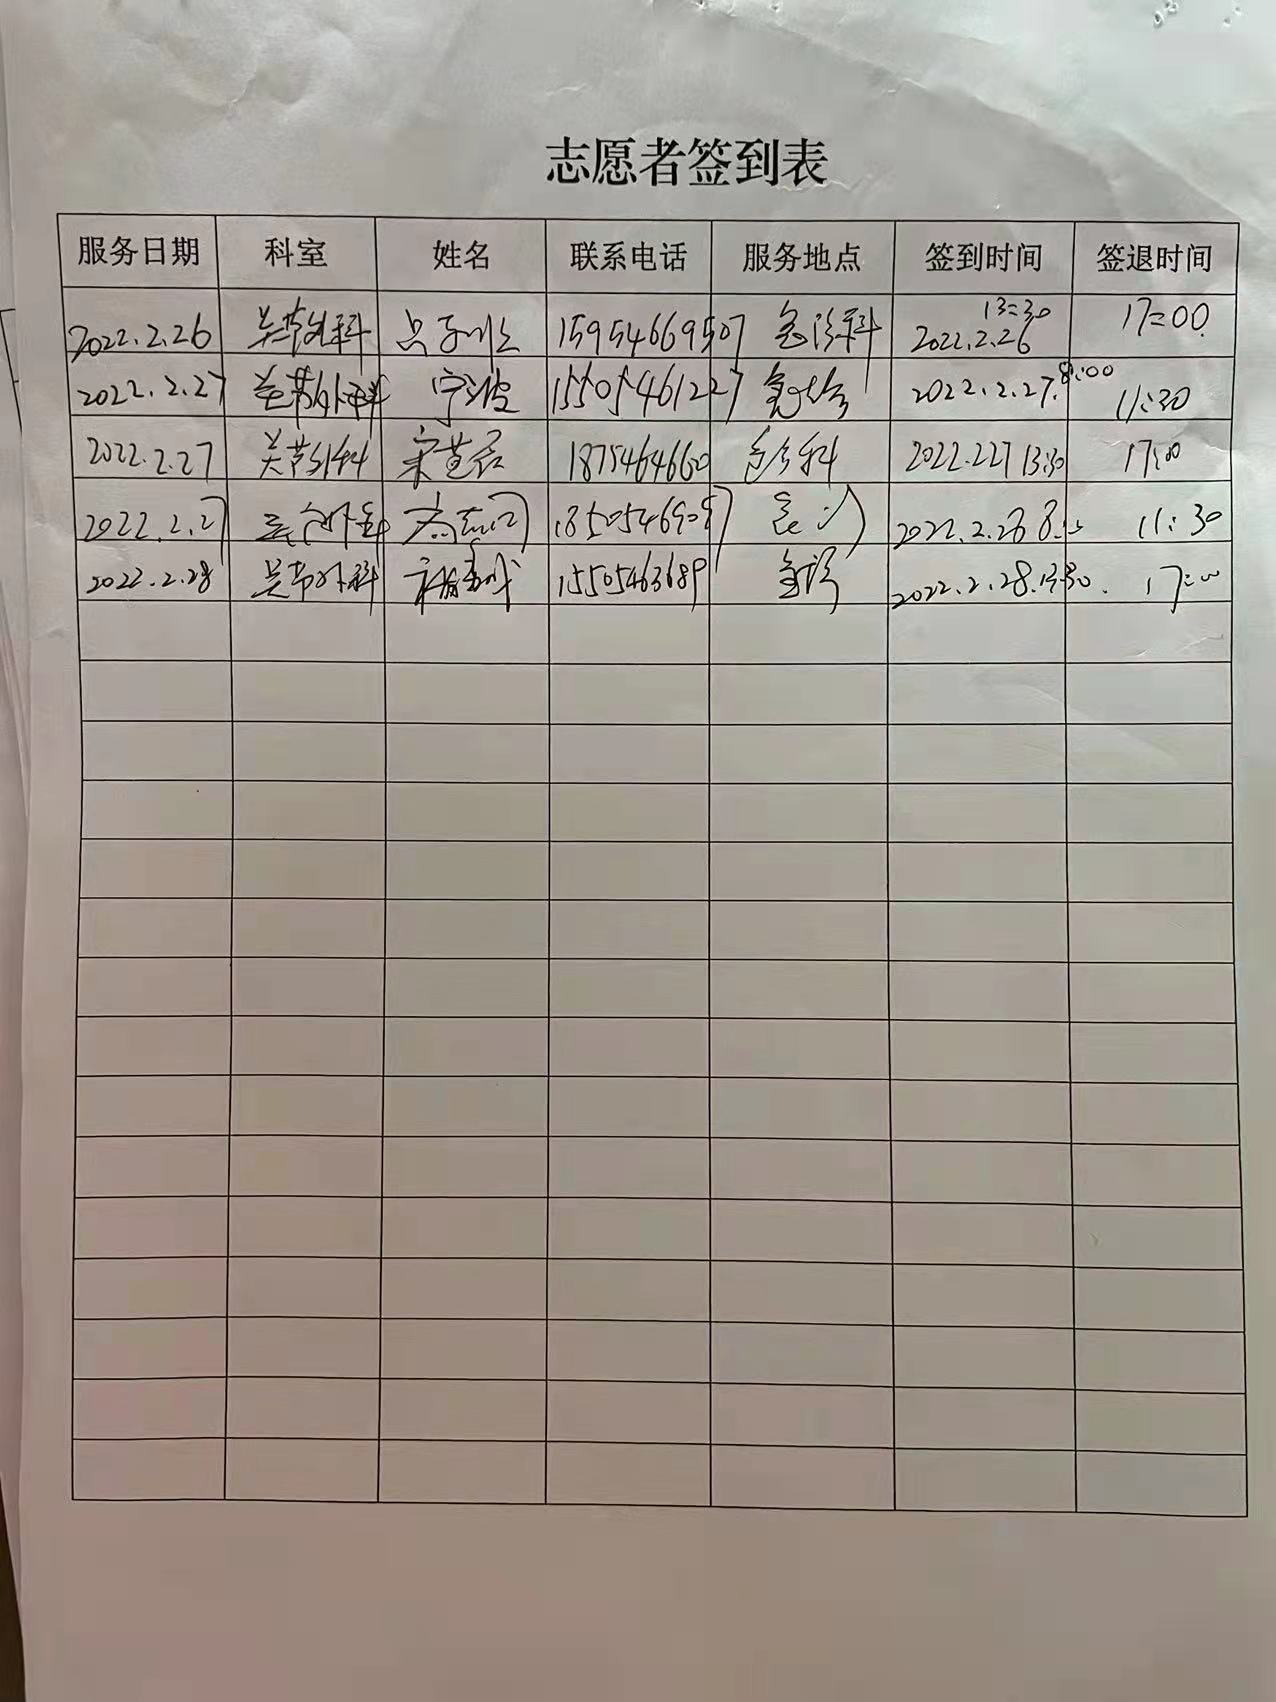 志愿者签到表
服务日期 科室 姓名 联系电话 服务地点 签到时间 签退时间
2022.2.26 关节外科 15954669507 急诊科 13:30 2022.2.26 17:00
2022.2.27 关节外科 宁波 15505461227 急诊 2022.2.27.8:00 11:30
2022.2.27 关节外科 宋萱君 1875464660 急诊科 2022.227 13:30 17:00
2022.2.27 关节外科 急诊 11:30
2022.2.28 关节外科 15505463689 急诊 2022.2.28.13:30. 17:00